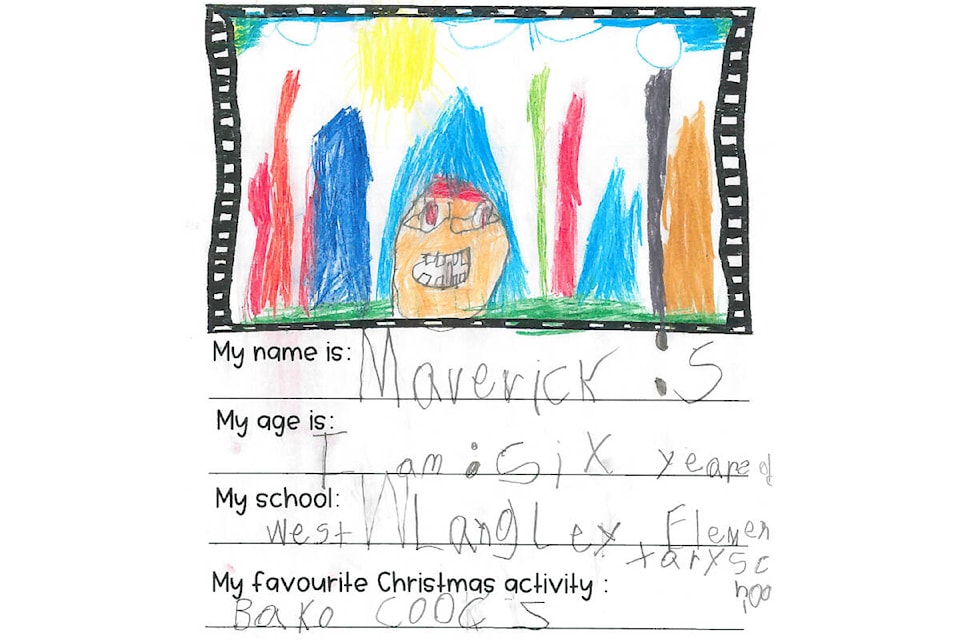 My name is: Maverick .S
My age is:
I am : Six years of
My school:
West W Langley Elemen
tary Sc
hoo
My favourite Christmas activity :
Bake COOC S